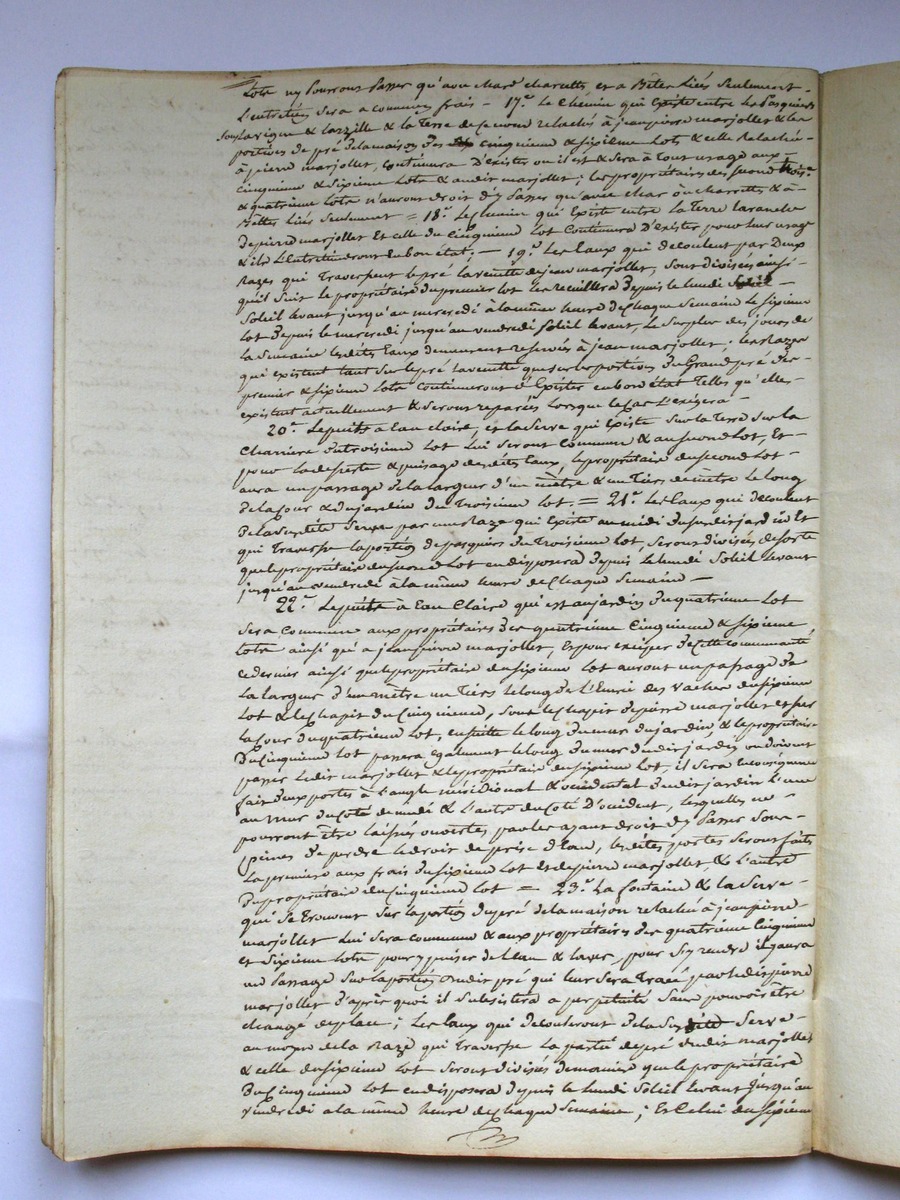 Lots n'y pourront passer qu'avec chars charettes et a Bêtes liés seulement.
L'entretien sera a communs frais - 17.e Le Chemin qui existe entre les Pasquiers
sous la vigne & Lazzille & la Terre de relachée à jeanpierre marjollet & les
portions de pré de la maison des cinquieme & sixieme Lots & celle Relachée
à pierre marjollet, Continuera D'exister ou il est & sera à tout usage aux
cinquieme & sixieme Lots & audit marjollet; les propriétaires des second trois.e
& quatrieme Lots n'auront Droit d'y Passer qu'avec char ou Charrettes & à
Bêtes liés seulement = 18.e Le chemin qui Existe entre la Terre
de pierre marjollet Et celle du Cinquieme Lot Continuera D'exister pour leur usage
& ils L'entretiendront en bon état; - 19.e Les Eaux qui decoulent par Deux
Razes qui Traversent le pré la veuve de jean marjollet, sont divisées ainsi
qu'il suit le propriétaire du premier lot les recuillera Depuis le lundi
Soleil levant jusqu'au mercredi à la même heure de Chaque Semaine le sixieme
lot depuis le mercredi jusqu'au vendredi Soleil levant, Le Surplus des jours de
la Semaine lesdites Eaux demeurent reservées à jean marjollet; les Razes
qui existent tant sur le pré la veuve que sur les portions du Grand pré des
premier & sixieme Lots Continueront d'Exister en bon état Telles qu'elles
existent actuellement & seront reparées Lorsque le Cas L'exigera
20.e Le puits à Eau claire, et la Serve qui Existe sur la Terre sur la
Charriere du troisieme Lot lui seront Communs & au second Lot, Et
pour la deserte & puisage desdites Eaux, le propriétaire du second Lot
aura un passage de la largeur d'un mètre & un Tiers de mètre le long
de la Cour & du jardin du Troisieme Lot. = 21.e Les Eaux qui decoulent
de la susdite Serve par une Raze qui Existe au midi du susdit jardin Et
qui Traverse la portion de pasquiers du Troisieme Lot, seront divisées de sorte
que le propriétaire du second Lot en disposera Depuis le lundi Soleil levant
jusqu'au vendredi à la même heure de Chaque Semaine -
22.e Le puits à Eau Claire qui est au jardin du quatrieme Lot
sera Commun aux propriétaires des quatrieme Cinquieme & sixieme
Lots ainsi qu'a jeanpierre marjollet, Et pour exciper de Cette communauté
ce dernier ainsi que le propriétaire du sixieme Lot auront un passage de
la largeur d'un mètre un Tiers le long de L'Ecurie des vaches du sixieme
Lot & le Chapit du Cinquieme, sous le Chapit de pierre marjollet et sur
la Cour du quatrieme Lot, ensuite le long du mur du jardin, & le propriétaire
Du Cinquieme Lot passera également le long du mur dudit jardin ou doivent
passer ledit marjollet & le propriétaire du sixieme Lot, il sera
fait deux portes à l'angle méridional & occidental dudit jardin l'une
au mur du Coté du midi & l'autre du Coté D'occident, Lesquelles ne
pourront être laissées ouvertes par les ayant droit d'y Passer Sous
peines de perdre le droit de prise d'Eau, lesdites portes seront faites
La premiere aux frais du sixieme Lot Et de pierre marjollet, & L'autre
Du propriétaire du Cinquieme Lot = 23.e La fontaine & la Serve
qui se trouvent sur la portion du pré de la maison relachée à jeanpierre
marjollet Lui sera commune & aux propriétaires des quatrieme Cinquieme
et Sixieme Lots pour y puiser de l'eau & laver, pour s'y rendre il y aura
un Passage sur la portion dudit pré qui leur sera tracé par ledit pierre
marjollet D'après quoi il subsistera a perpétuité Sans pouvoir être
changé de place; Les Eaux qui decouleront de la susdite Serve
au moyen de la Raze qui traverse la partie de pré dudit marjollet
& celle du sixieme Lot seront divisées de maniere que le propriétaire
Du Cinquieme Lot en disposera depuis le lundi Soleil levant jusqu'au
vendredi a la même heure de Chaque Semaine; Et Celui du sixieme